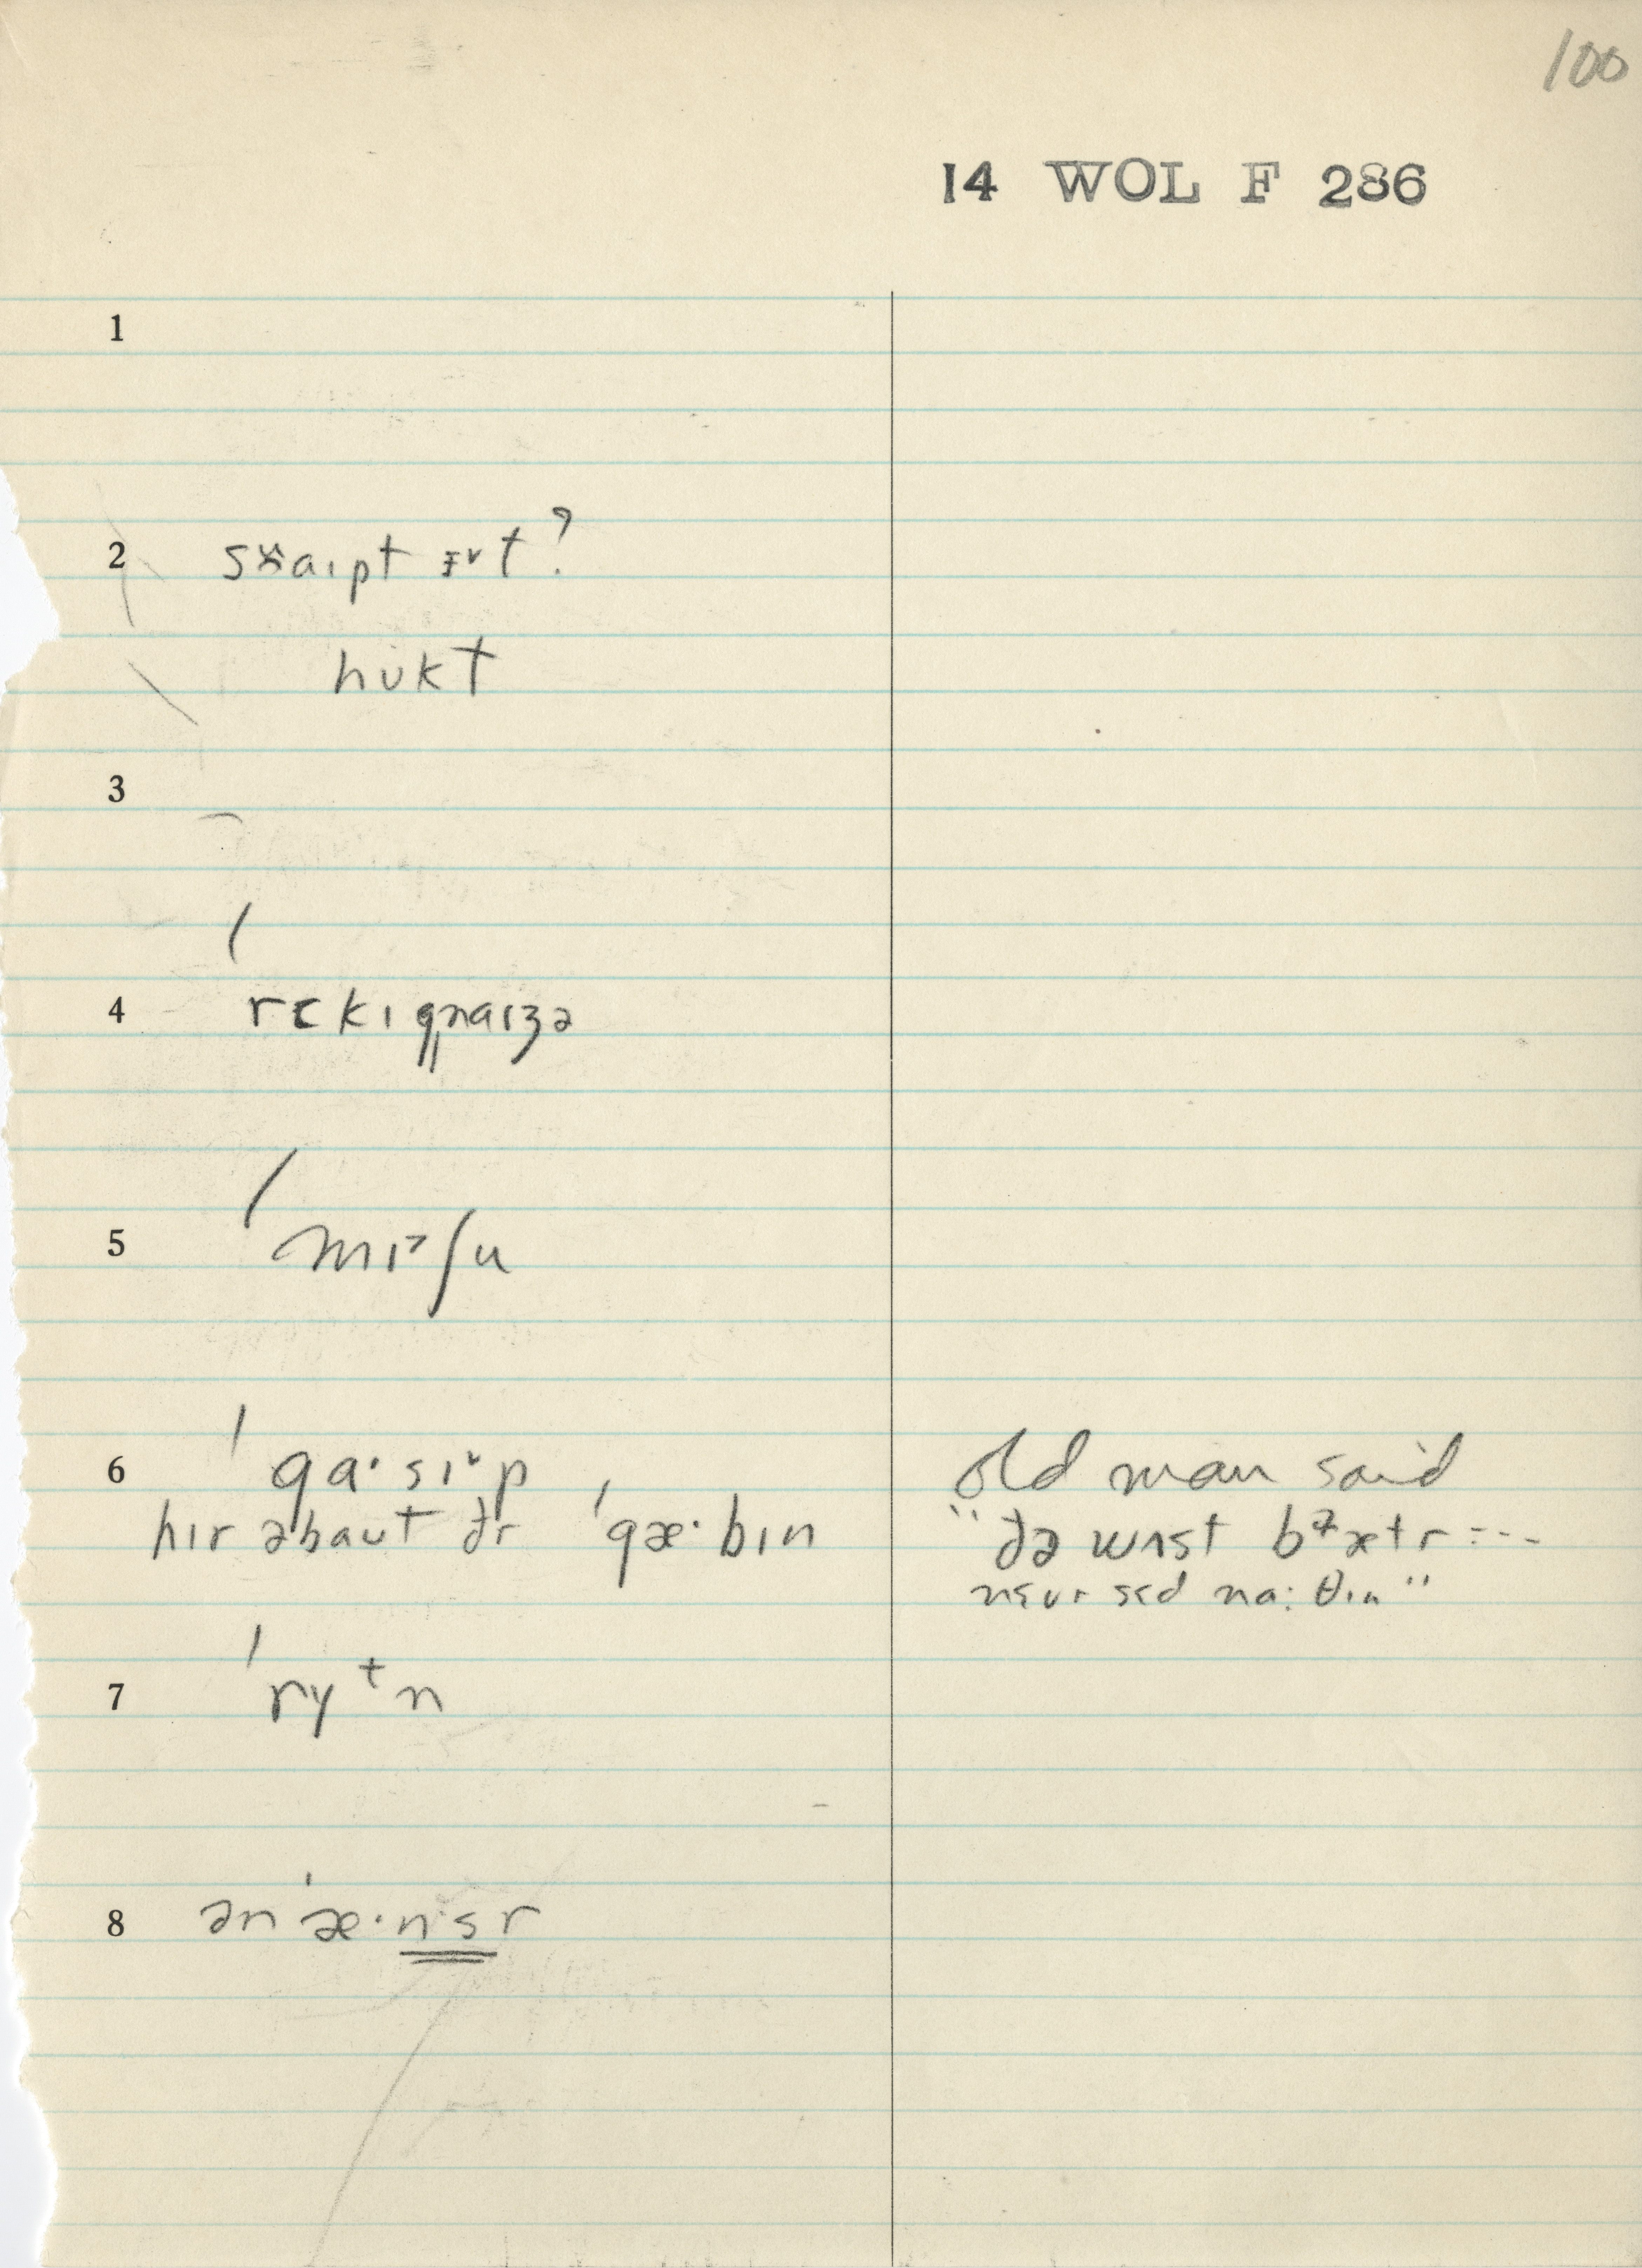 100
14 WOL F 286
1
2 swaɪpt ɪ˅t?
hukt
3
4 ˈrɛkɪgnaɪzə
5 ˈmɪ˃ʃu
6 ˈga·sɪ˅p
hɪr əbaut ðr ˈgæ·bɪn
old man said
"ðə wɪst
nɛvr sɛd na:θɪn"
7 ˈry⁺n
8 ənˈæ·nsr